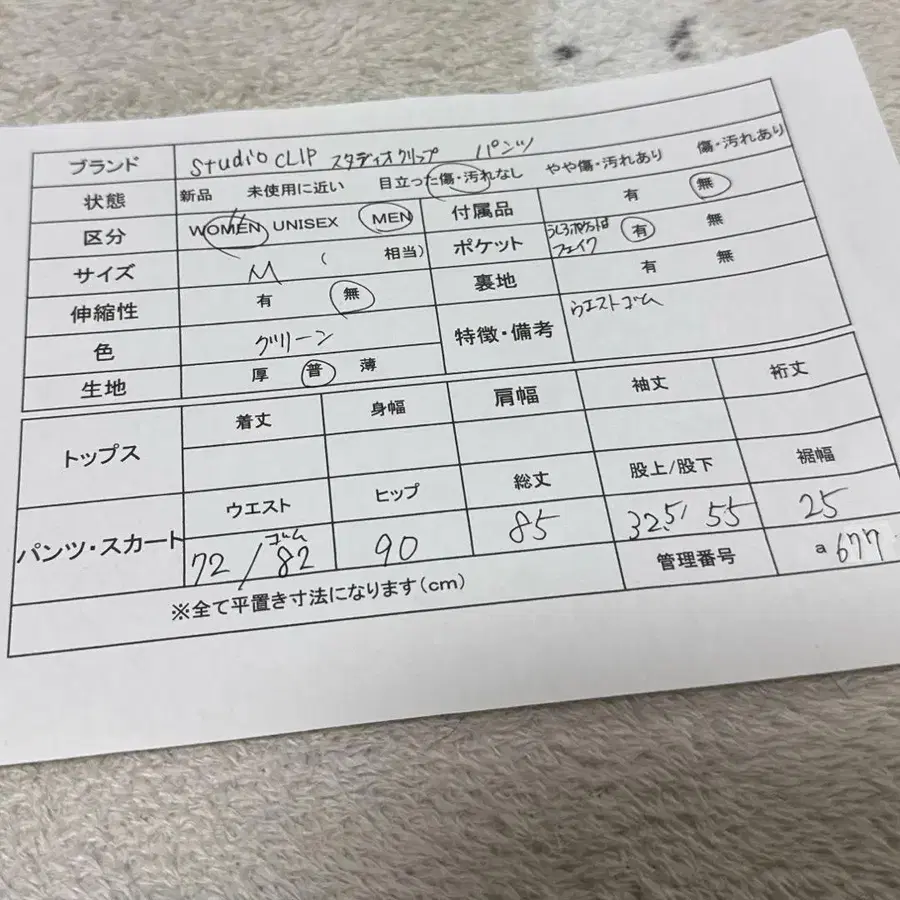 ブランド studio CLIP スタディオクリップ パンツ
状態 新品 未使用に近い 目立った傷・汚れなし やや傷・汚れあり 傷・汚れあり
区分 WOMEN UNISEX MEN 付属品 有 無
サイズ M ( 相当) ポケット うしろポケットは フェイク 有 無
伸縮性 有 無 裏地 有 無
色 グリーン 特徴・備考 ウエストゴム
生地 厚 普 薄
トップス 着丈 身幅 肩幅 袖丈 裄丈
パンツ・スカート ウエスト ヒップ 総丈 股上/股下 裾幅
72 / ゴム 82 90 85 32.5/ 55 25
※全て平置き寸法になります(cm) 管理番号 a 677